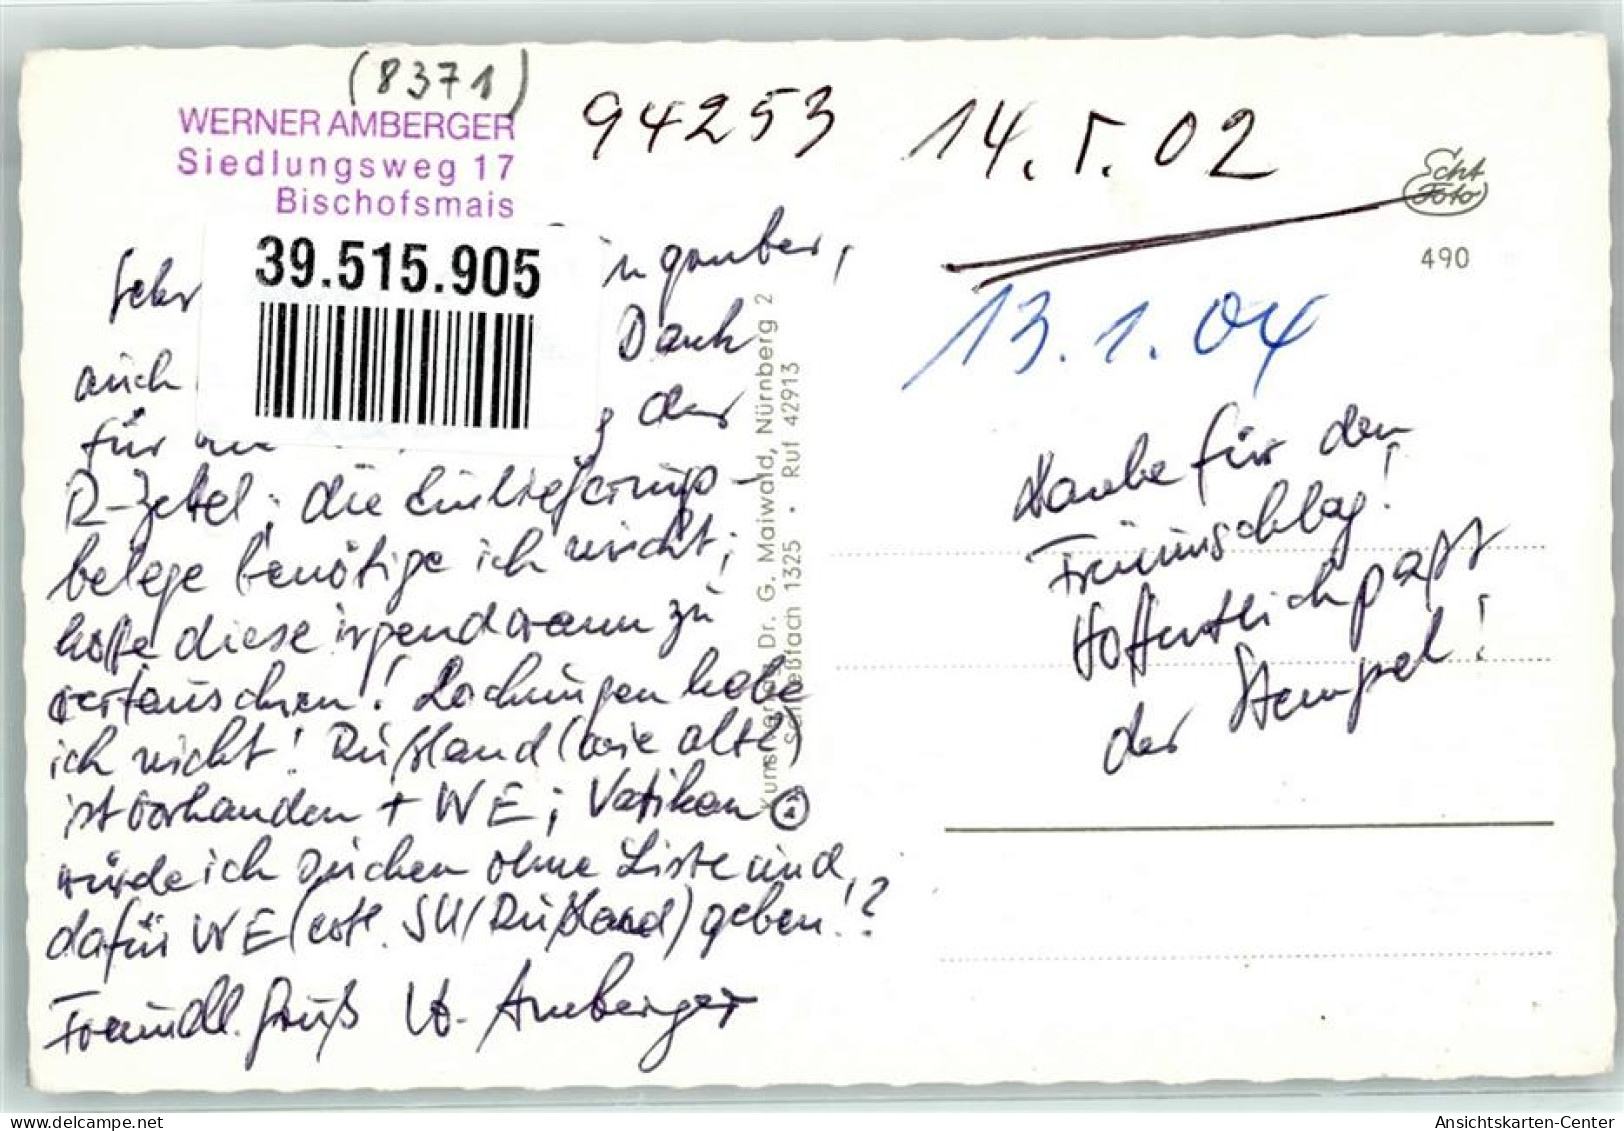 (8371)
WERNER AMBERGER
Siedlungsweg 17
Bischofsmais
94253 14. 1. 02
Echt
Foto
490
39.515.905
13. 1. 04
Sehr
auch Dank
für der
R-Zettel; die Einlieferungs-
belege benötige ich nicht;
hoffe diese irgendwann zu
vertauschen! Lochungen habe
ich nicht! Rußland (wie alt?)
ist vorhanden + WE; Vatikan
würde ich suchen ohne Liste und
dafür WE (evtl. SU/Rußland) geben!?
Freundl. Gruß W. Amberger
Kunstverlag Dr. G. Maiwald, Nürnberg 2
Schließfach 1325 · Ruf 42913
Danke für den
Freiumschlag!
Hoffentlich paßt
der Stempel!
Ansichtskarten-Center